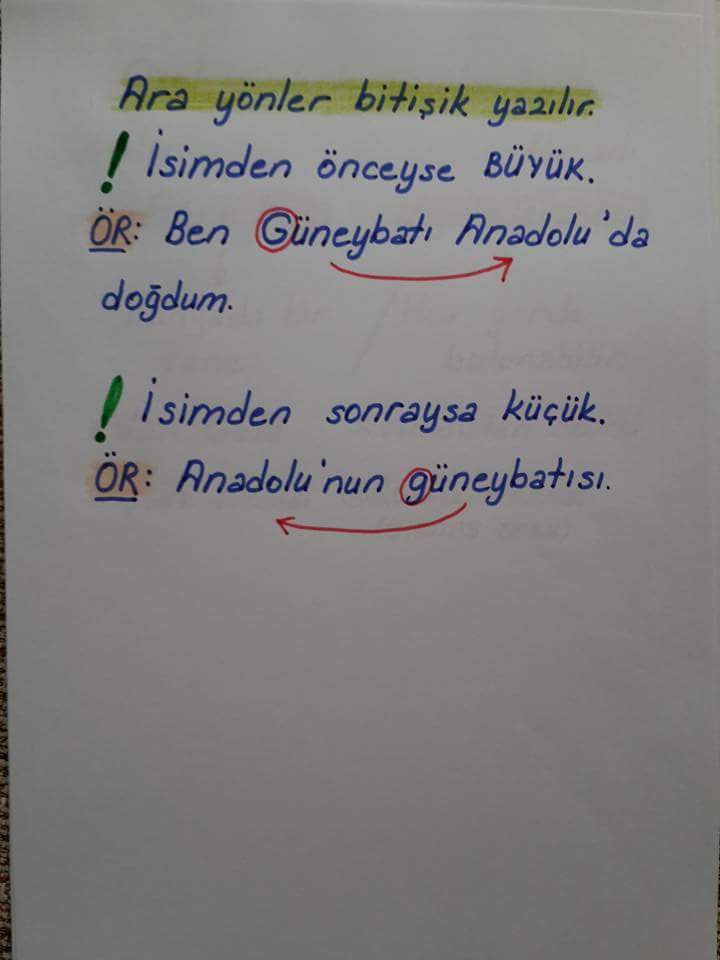 Ara yönler bitişik yazılır.
! İsimden önceyse BÜYÜK.
ÖR: Ben Güneybatı Anadolu'da
doğdum.
! İsimden sonraysa küçük.
ÖR: Anadolu'nun güneybatısı.